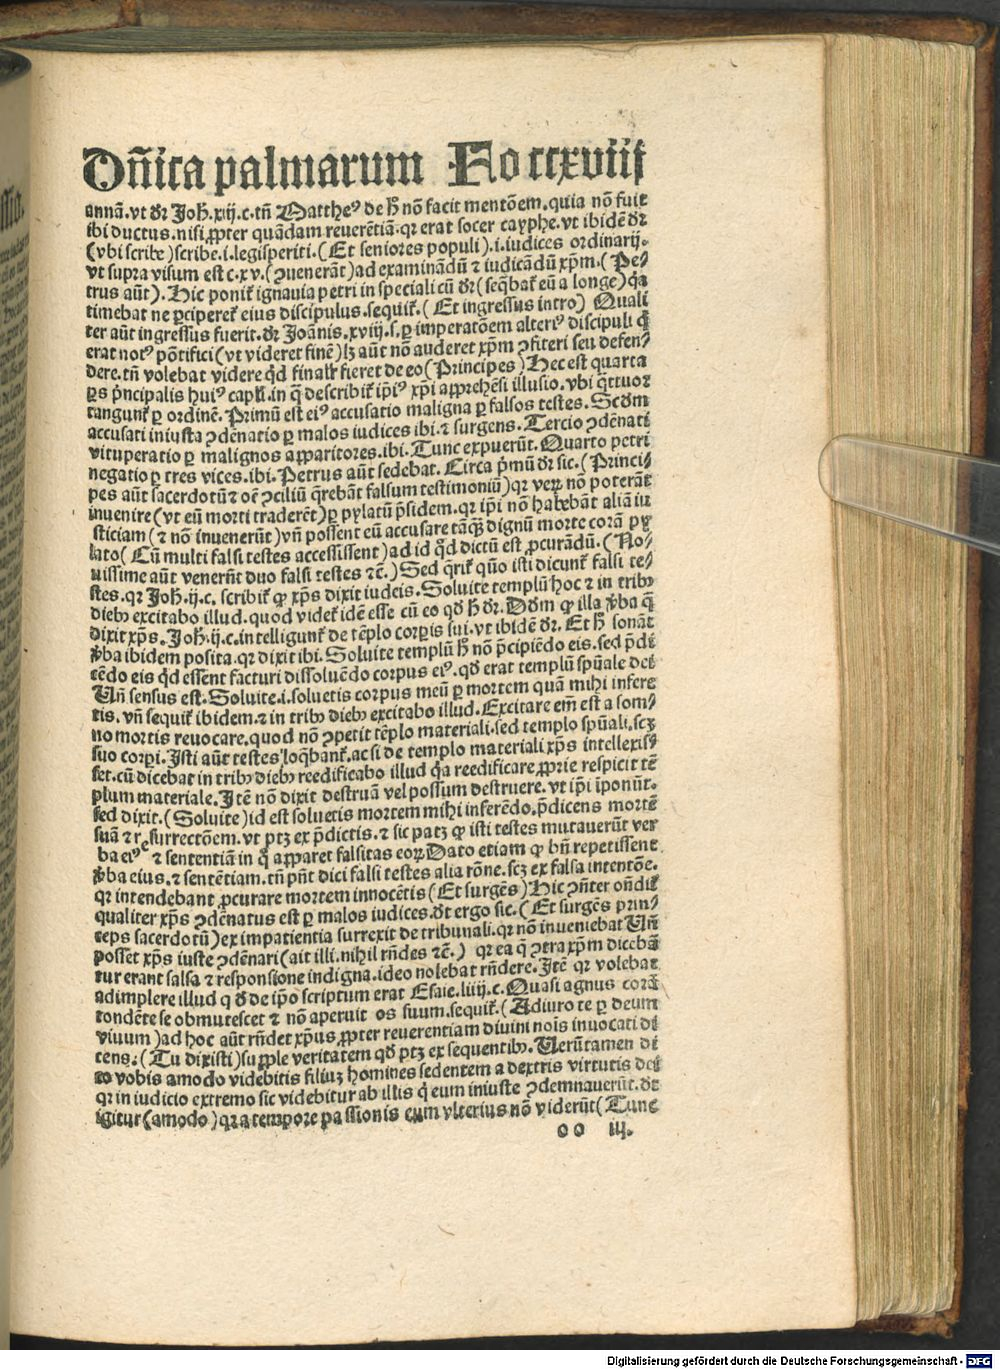 Dñica palmarum Fo ccxviij
annã. vt dr̃ Joħ. xij. c. tñ Mattheꝰ de ħ nõ facit mentõem. quia nõ fuit
ibi ductus. nisi ꝓpter quãdam reuerẽtiã. qr erat socer cayphe. vt ibidẽ dr̃
(vbi scribe) scribe. i. legisperiti. (Et seniores populi). i. iudices ordinarij.
vt supra visum est c. xv. (ꝯuenerãt) ad examinãdũ ⁊ iudicãdũ xp̃m. (Pe⸗
trus aũt). Hic ponit̃ ignauia petri in speciali cũ dr̃ (seq̃bat̃ eũ a longe) q̃a
timebat ne ꝑciperet̃ eius discipulus. sequit̃. (Et ingressus intro) Quali
ter aũt ingressus fuerit. dr̃ Joãnis. xviij. s. ꝑ imperatõem alteriꝰ discipuli q̃
erat notꝰ põtifici (vt videret finẽ) lꝫ aũt nõ auderet xp̃m ꝯfiteri seu defen⸗
dere. tñ volebat videre qd̃ finalr̃ fieret de eo (Principes) Hec est quarta
ꝑs p̃ncipalis huiꝰ capl̃i. in q̃ describit̃ ip̃iꝰ xp̃i apprehẽsi illusio. vbi q̃ttuor
tangunt̃ ꝑ ordinẽ. Primũ est eiꝰ accusatio maligna ꝑ falsos testes. Scd̃m
accusati iniusta ꝯdẽnatio ꝑ malos iudices ibi. ⁊ surgens. Tercio ꝯdẽnati
vituperatio ꝑ malignos apparitores. ibi. Tunc expuerũt. Quarto petri
negatio ꝑ tres vices. ibi. Petrus aũt sedebat. Circa p̃mũ dr̃ sic. (Princi⸗
pes aũt sacerdotũ ⁊ oẽ ꝯciliũ q̃rebãt falsum testimoniũ) qr veꝝ nõ poterãt
inuenire (vt eũ morti traderẽt) ꝑ pylatũ p̃sidem. qr ip̃i nõ habebãt aliã iu
sticiam (⁊ nõ inuenerũt) vñ possent eũ accusare tãꝙ̃ dignũ morte corã py
lato (Cũ multi falsi testes accessissent) ad id qd̃ dictũ est ꝓcurãdũ. (No⸗
uissime aũt venerũt duo falsi testes ⁊c̃.) Sed q̃rit̃ quõ isti dicunt̃ falsi te⸗
stes. qr Joħ. ij. c. scribit̃ ꝙ xp̃s dixit iudeis. Soluite templũ hoc ⁊ in tribꝫ
diebꝫ excitabo illud. quod videt̃ idẽ esse cũ eo qd̃ ħ dr̃. Dd̃m ꝙ illa v̓ba q̃
dixit xp̃s. Joħ. ij. c. intelligunt̃ de tẽplo corꝑis sui. vt ibidẽ dr̃. Et ħ sonãt
v̓ba ibidem posita. qr dixit ibi. Soluite templũ ħ nõ p̃cipiẽdo eis. sed p̃di
cẽdo eis qd̃ essent facturi dissoluẽdo corpus eiꝰ. qd̃ erat templũ spũale dei
Uñ sensus est. Soluite. i. soluetis corpus meũ ꝑ mortem quã mihi infere
tis. vñ sequit̃ ibidem. ⁊ in tribꝫ diebꝫ excitabo illud. Excitare em̃ est a som⸗
no mortis reuocare. quod nõ ꝯpetit tẽplo materiali. sed templo spũali. scꝫ
suo corꝑi. Isti aũt testes loq̃bant̃. ac si de templo materiali xp̃s intellexis⸗
set. cũ dicebat in tribꝫ diebꝫ reedificabo illud q̃a reedificare ꝓprie respicit tẽ
plum materiale. Itẽ nõ dixit destruã vel possum destruere. vt ip̃i ĩponũt.
sed dixit. (Soluite) id est soluetis mortem mihi inferẽdo. p̃dicens mortẽ
suã ⁊ resurrectõem. vt ptꝫ ex p̃dictis. ⁊ sic patꝫ ꝙ isti testes mutauerũt ver
ba eiꝰ ⁊ sententiã in q̃ apparet falsitas eoꝝ Dato etiam ꝙ bñ repetissent
v̓ba eius. ⁊ sentẽtiam. tñ pñt dici falsi testes alia rõne. scꝫ ex falsa intentõe.
qr intendebant ꝓcurare mortem innocẽtis (Et surgẽs) Hic ꝯñter oñdit̃
qualiter xp̃s ꝯdẽnatus est ꝑ malos iudices. dt̃ ergo sic. (Et surgẽs prin⸗
ceps sacerdotũ) ex impatientia surrexit de tribunali. qr nõ inueniebat Uñ
posset xp̃s iuste ꝯdẽnari (ait illi. nihil rñdes ⁊c̃.) qr ea q̃ ꝯtra xp̃m diceban
tur erant falsa ⁊ responsione indigna. ideo nolebat rñdere. Itẽ qr volebat
adimplere illud qd̃ de ip̃o scriptum erat Esaie. liiij. c. Quasi agnus corã
tondẽte se obmutescet ⁊ nõ aperuit os suum. sequit̃. (Adiuro te ꝑ deum
viuum) ad hoc aũt rñdet xp̃us ꝓpter reuerentiam diuini nois inuocati di
cens. (Tu dixisti) supple veritatem qd̃ ptꝫ ex sequentibꝫ. Uerũtamen di
co vobis amodo videbitis filiuꝫ homines sedentem a dextris virtutis dei
qr in iudicio extremo sic videbitur ab illis q̃ eum iniuste ꝯdemnauerũt. dt̃
igitur (amodo) qr a tempore passionis eum vlterius nõ viderũt (Tunc
oo iij.
Digitalisierung gefördert durch die Deutsche Forschungsgemeinschaft - DFG